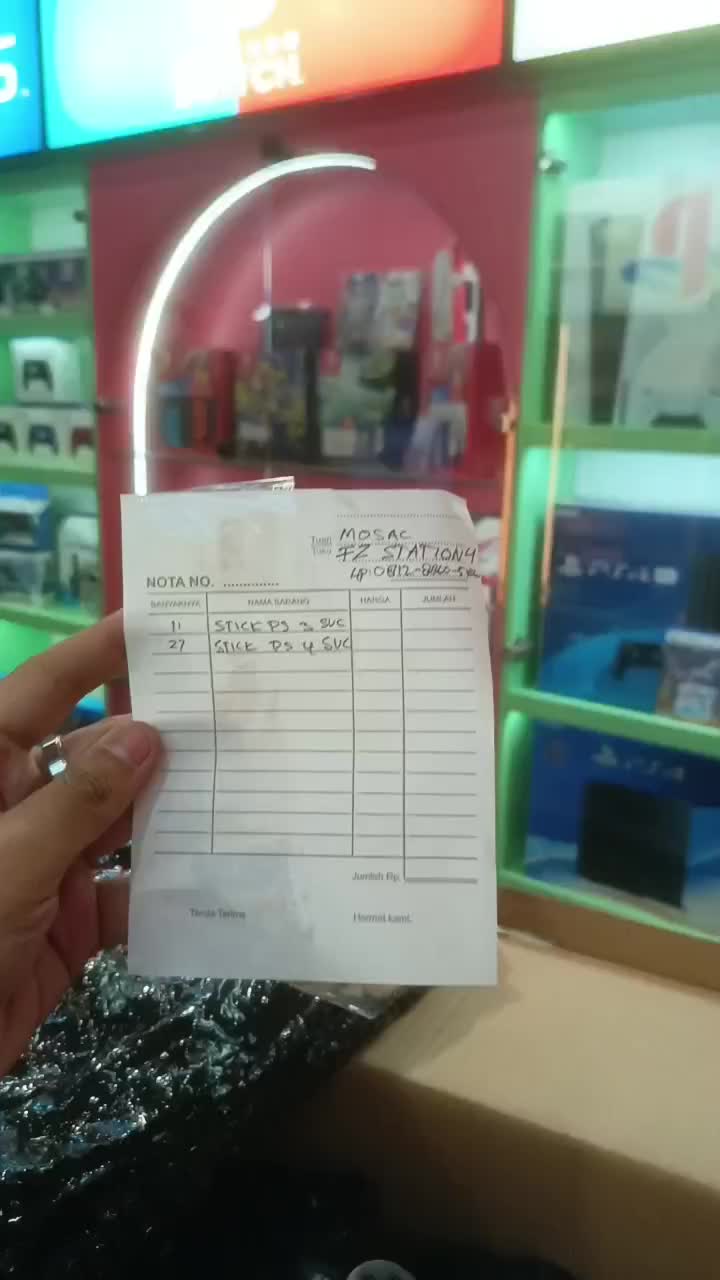 Tuan MOSAC
Toko FZ STATION4
NOTA NO. ..............
BANYAKNYA NAMA BARANG HARGA JUMLAH
11 STICK PS 3 SVC
27 STICK PS 4 SVC
Jumlah Rp.
Tanda Terima Hormat kami,
PS4
PS4